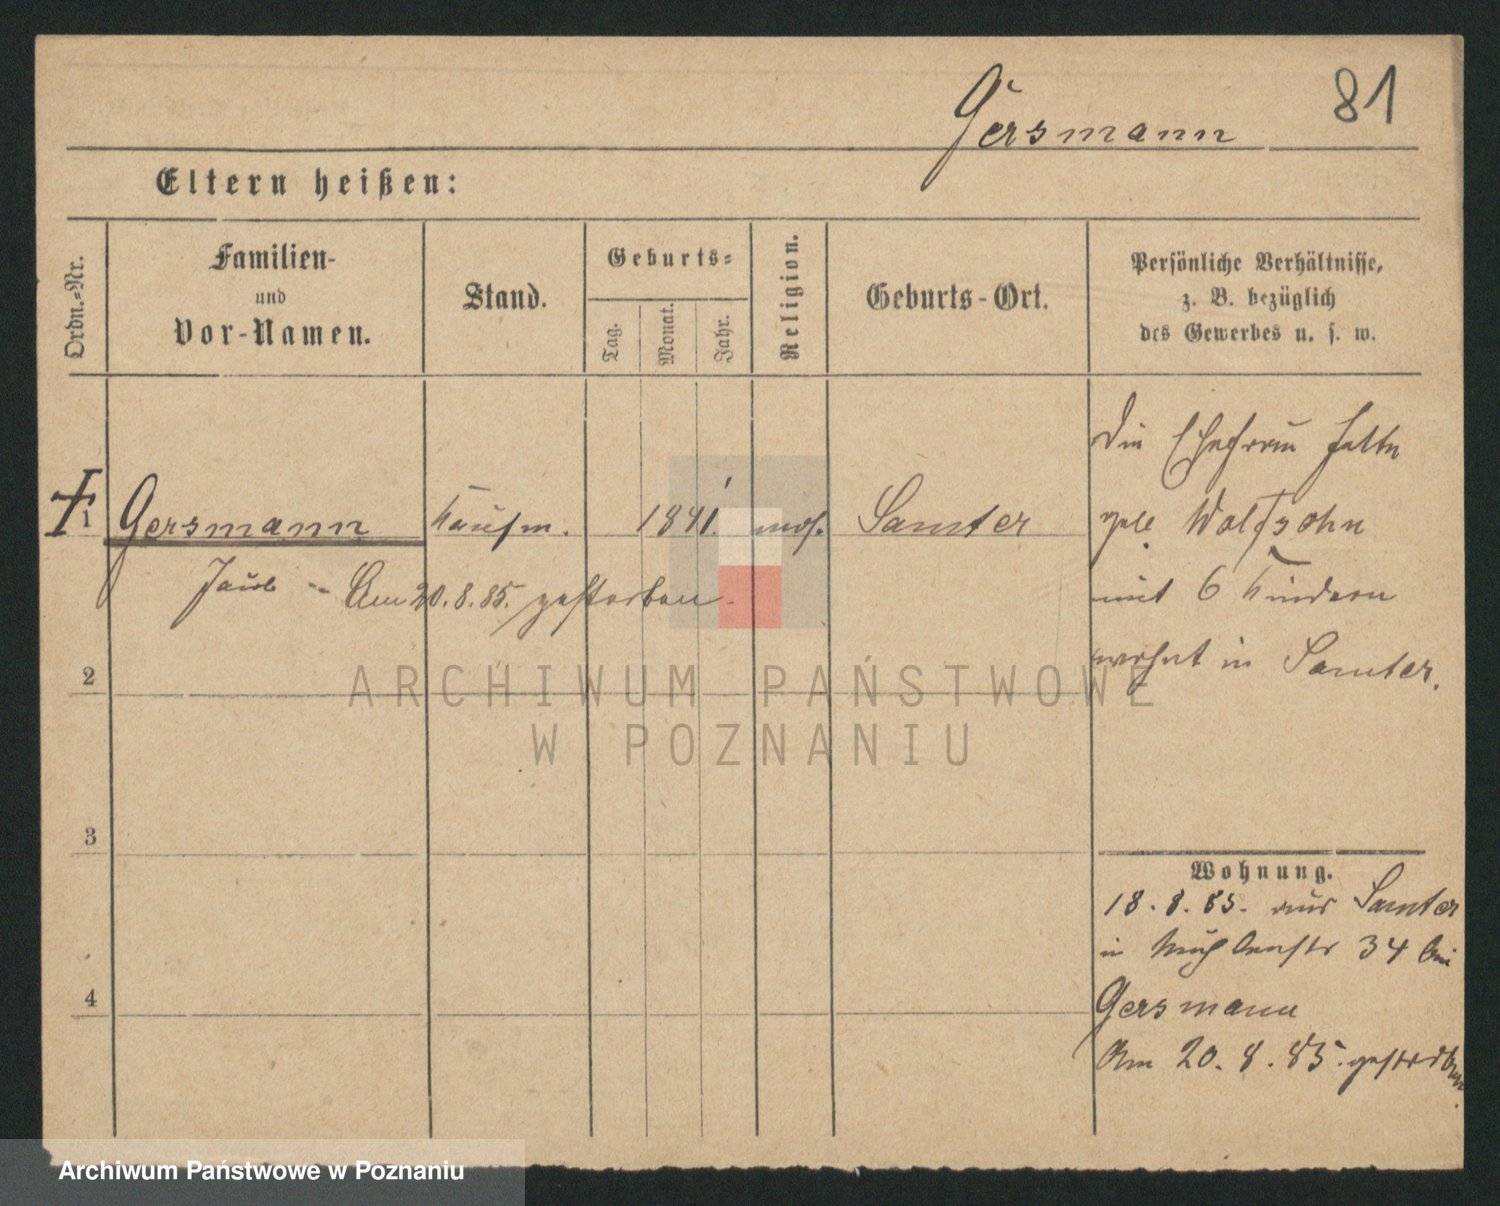 81
Gersmann
Eltern heißen:
Ordn.-Nr.
Familien-
und
Vor-Namen.
Stand.
Geburts-
Tag.
Monat.
Jahr.
Religion.
Geburts-Ort.
Persönliche Verhältnisse,
z. B. bezüglich
des Gewerbes u. s. w.
1
Gersmann
Kaufm.
1841.
mos.
Samter
Am 20.8.85. gestorben.
Die Ehefrau
geb. Wolfsohn
mit 6 Kindern
wohnt in Samter.
2
3
4
Wohnung.
18.8.85. aus Samter
in Mühlenstr 34 bei
Gersmann
Am 20.8.85. gestorben.
ARCHIWUM PAŃSTWOWE
W POZNANIU
Archiwum Państwowe w Poznaniu